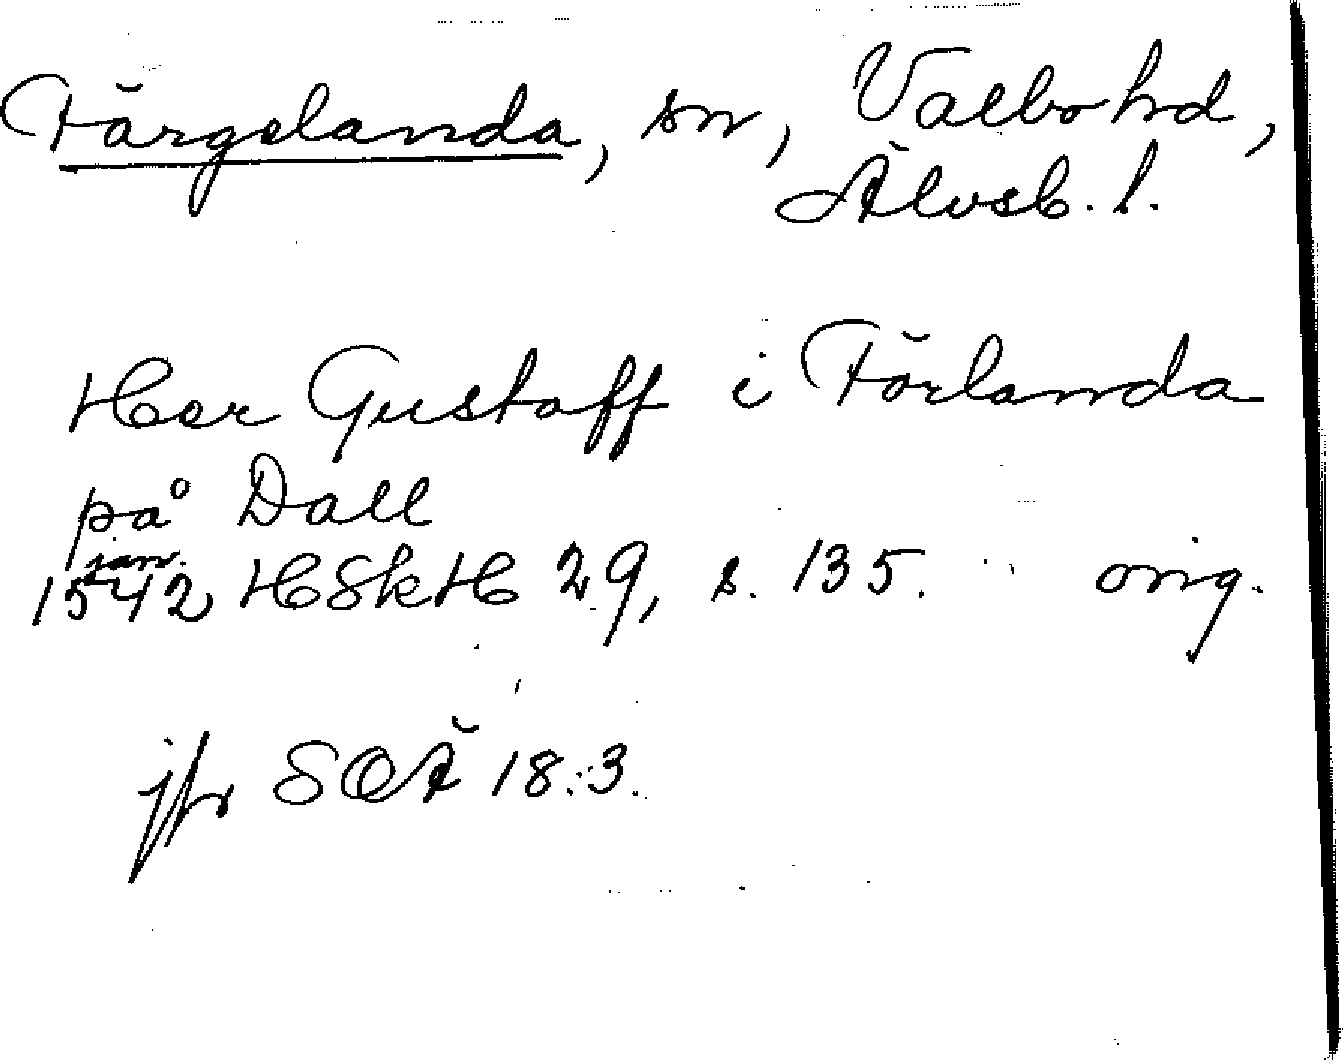 Färgelanda, sn, Valbo hd,
Älvsb. l.
Her Gustaff i Förlanda
på Dall
jan.
1542 HSkH 29, s. 135. orig.
jfr SOÄ 18:3.